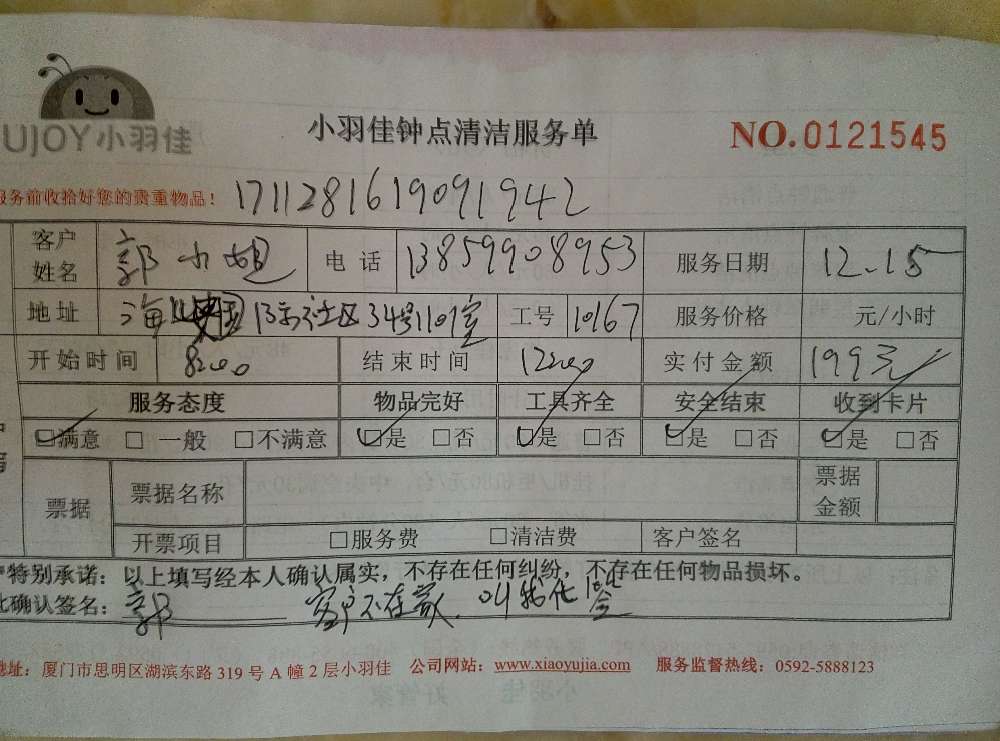 UJOY小羽佳
小羽佳钟点清洁服务单
NO.0121545
服务前收拾好您的贵重物品！
1711281619091942
客户姓名 郭小姐 电话 13859908953 服务日期 12.15
地址 海 社区34号1101室 工号 10167 服务价格 元/小时
开始时间 8:00 结束时间 12:00 实付金额 199元
服务态度 物品完好 工具齐全 安全结束 收到卡片
☑满意 □一般 □不满意 ☑是 □否 ☑是 □否 ☑是 □否 ☑是 □否
票据 票据名称 票据金额
开票项目 □服务费 □清洁费 客户签名
特别承诺：以上填写经本人确认属实，不存在任何纠纷，不存在任何物品损坏。
此确认签名：郭 客户不在家 叫我代
地址：厦门市思明区湖滨东路 319 号 A 幢 2 层小羽佳 公司网站：www.xiaoyujia.com 服务监督热线：0592-5888123